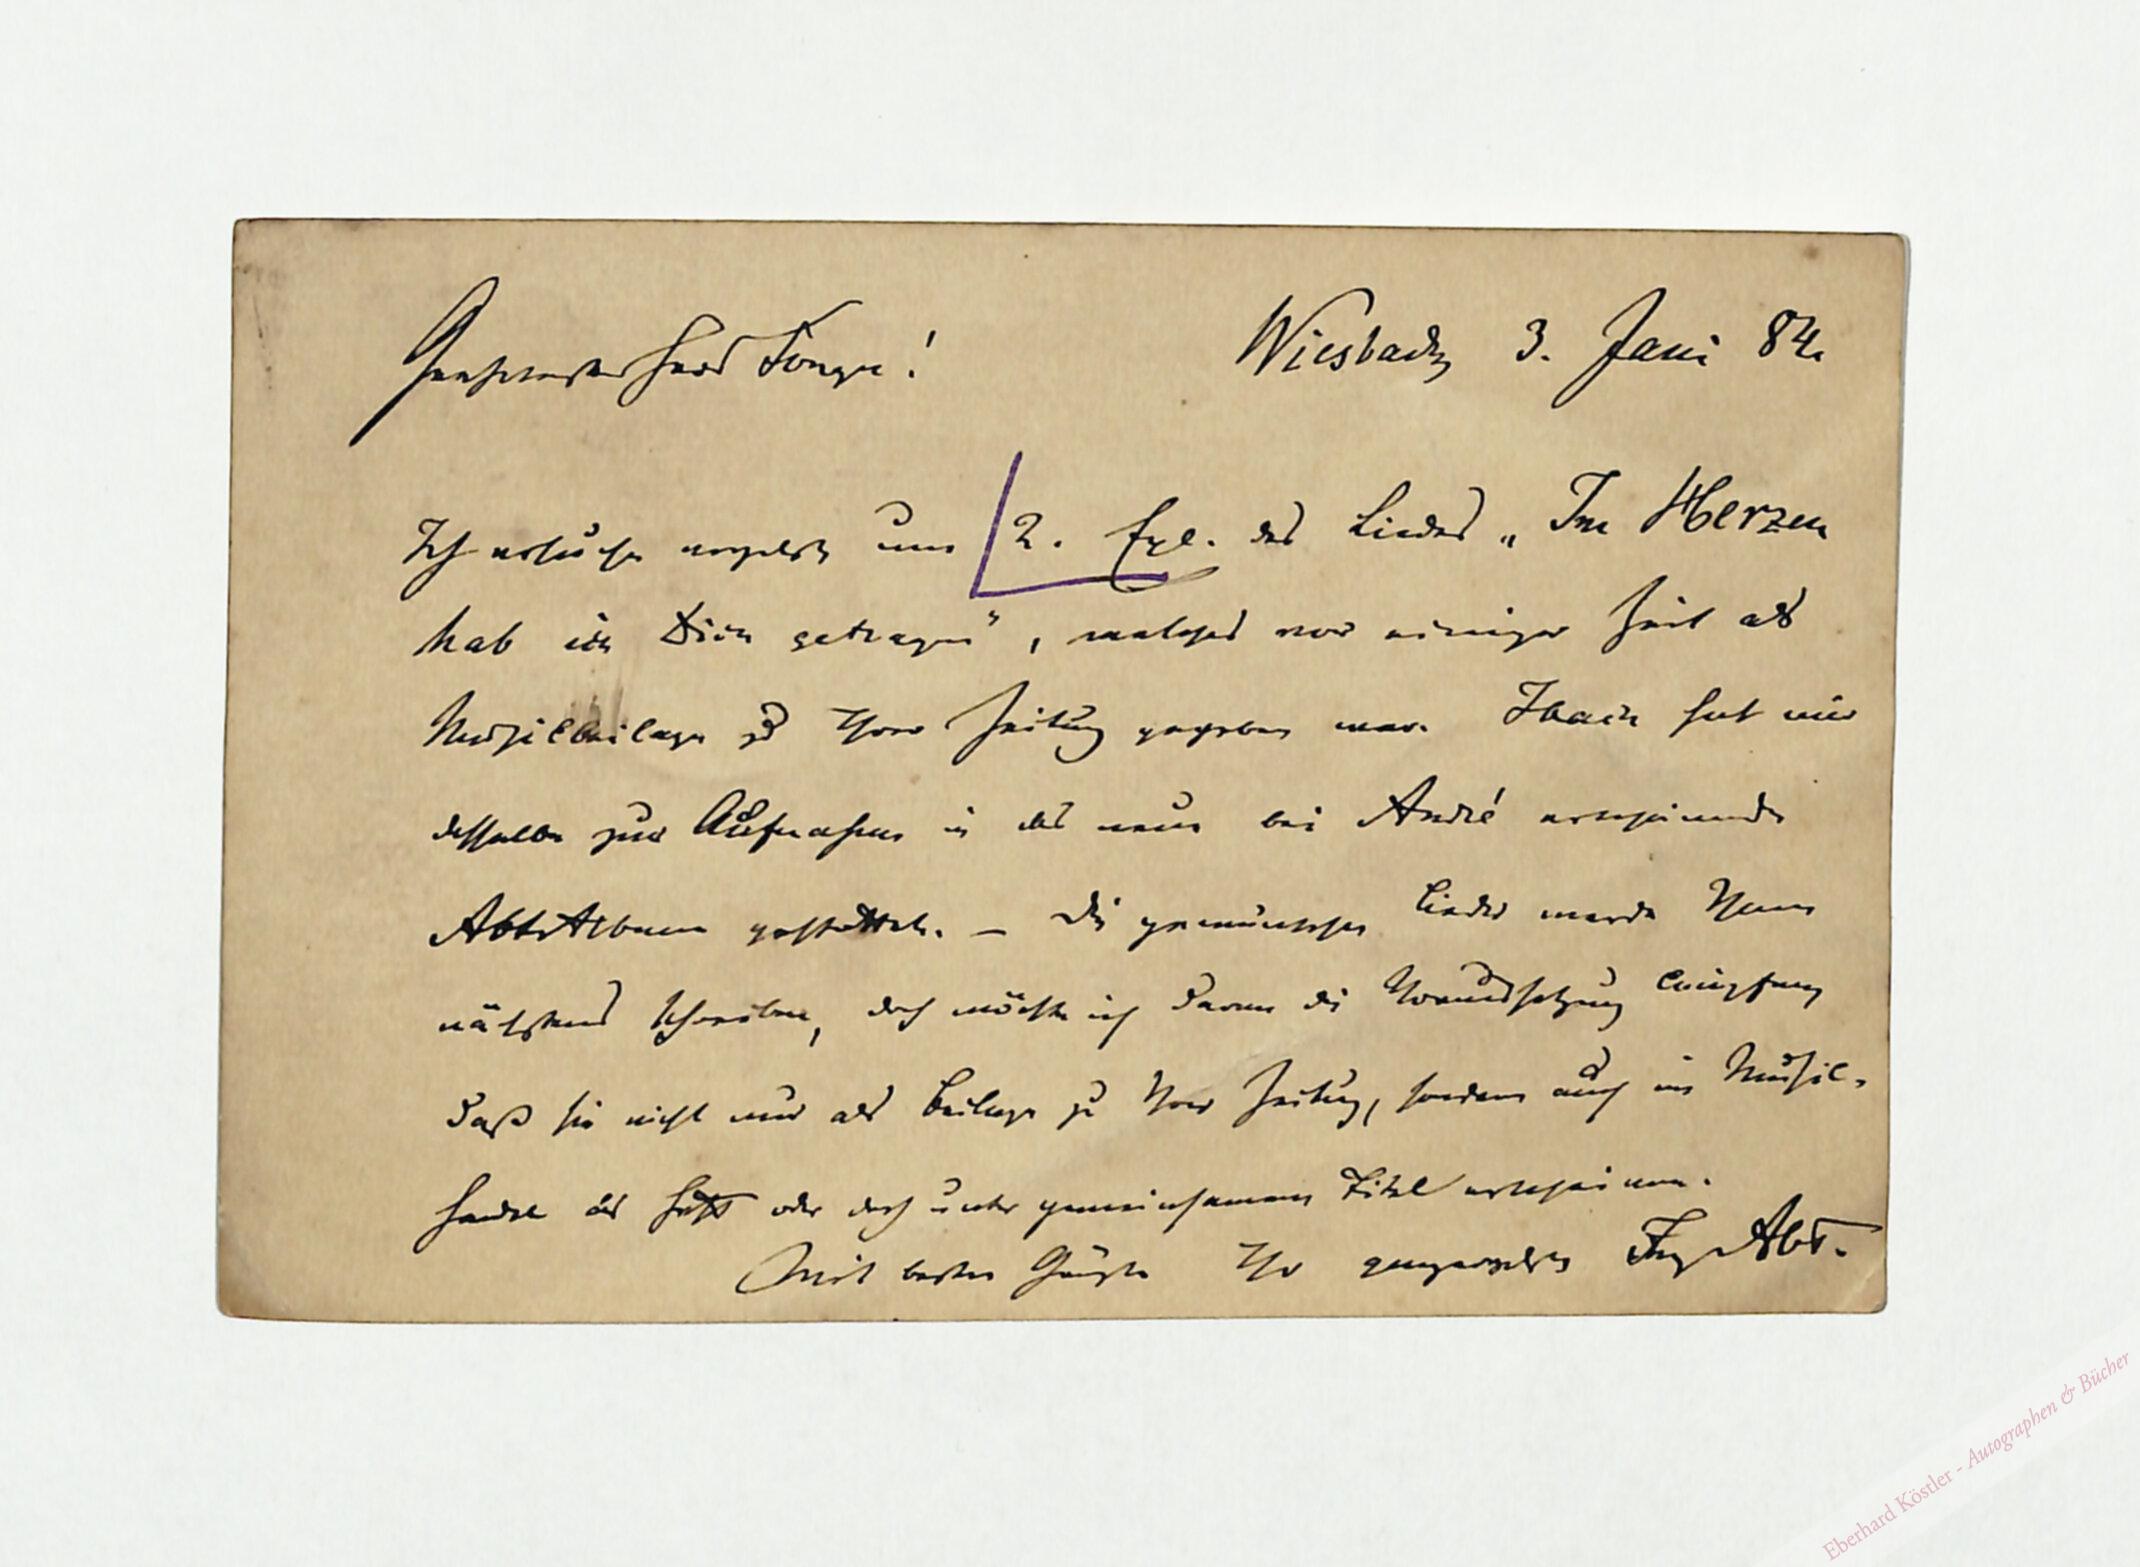 Geehrtester Herr Tonger! Wiesbaden 3. Juni 84.
Ich ersuche ergebenst um 2. Exl. des Liedes „Im Herzen
hab ich Dich getragen", welches vor einiger Zeit als
Musikbeilage zu Ihrer Zeitung gegeben war. Ibach hat mir
dasselbe zur Aufnahme in das neue bei André erscheinende
Abt-Album gestattet. – Die gewünschten Lieder werde Ihnen
nächstens schreiben, doch möchte ich daran die Voraussetzung knüpfen,
daß sie nicht nur als Beilage zu Ihrer Zeitung, sondern auch im Musik-
handel als Heft oder doch unter gemeinsamem Titel erscheinen.
Mit besten Grüßen Ihr ganz ergebener Frz Abt.
Eberhard Köstler - Autographen & Bücher